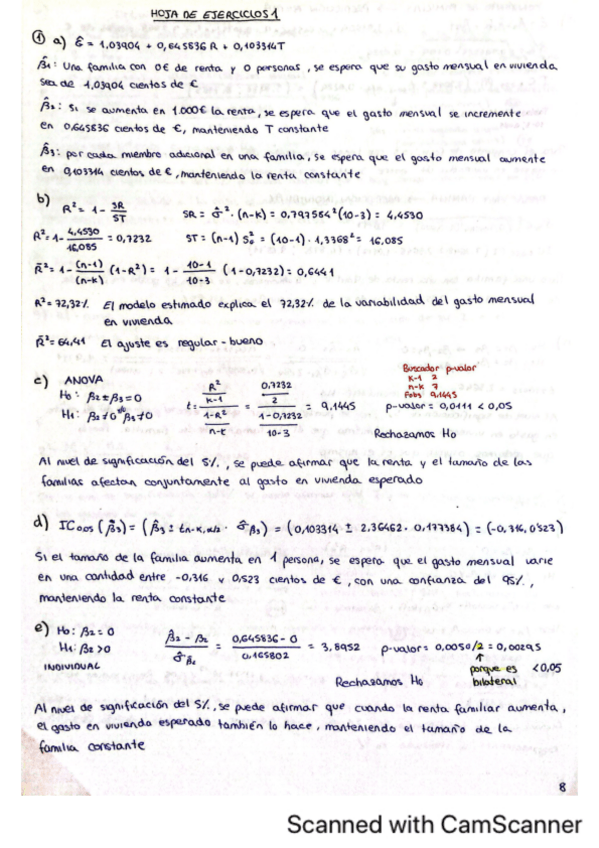 HOJA DE EJERCICIOS 1
① a) Ĝ = 1,03904 + 0,645836 R + 0,103314T
β̂1: Una familia con 0€ de renta y 0 personas, se espera que su gasto mensual en vivienda
sea de 1,03904 cientos de €
β̂2: Si se aumenta en 1.000€ la renta, se espera que el gasto mensual se incremente
en 0,645836 cientos de €, manteniendo T constante
β̂3: por cada miembro adicional en una familia, se espera que el gasto mensual aumente
en 0,103314 cientos de €, manteniendo la renta constante
b) R² = 1 - SR/ST SR = σ̂² · (n-k) = 0,797564² (10-3) = 4,4530
R² = 1 - 4,4530/16,085 = 0,7232 ST = (n-1) S² = (10-1) · 1,3368² = 16,085
R̄² = 1 - (n-1)/(n-k) (1-R²) = 1 - 10-1/10-3 (1-0,7232) = 0,6441
R² = 72,32% El modelo estimado explica el 72,32% de la variabilidad del gasto mensual
en vivienda
R̄² = 64,41 El ajuste es regular - bueno
c) ANOVA
H0: β2 = β3 = 0
H1: β2 ≠ 0 β3 ≠ 0
t = (R²/k-1)/(1-R²/n-k) = (0,7232/2)/(1-0,7232/10-3) = 9,1445
Buscador p-valor
k-1 2
n-k 7
Fobs 9,1445
p-valor = 0,0111 < 0,05
Rechazamos H0
Al nivel de significación del 5%, se puede afirmar que la renta y el tamaño de las
familias afectan conjuntamente al gasto en vivienda esperado
d) IC0,05 (β̂3) = (β̂3 ± tn-k,α/2 · σ̂β3) = (0,103314 ± 2,36462 · 0,177384) = (-0,316, 0,523)
Si el tamaño de la familia aumenta en 1 persona, se espera que el gasto mensual varie
en una cantidad entre -0,316 y 0,523 cientos de €, con una confianza del 95%,
manteniendo la renta constante
e) H0: β2 = 0
H1: β2 > 0
INDIVIDUAL
β̂2 - β2/σ̂β2 = 0,645836 - 0/0,165802 = 3,8952 p-valor = 0,0050/2 = 0,00295
↑
porque es bilateral
< 0,05
Rechazamos H0
Al nivel de significación del 5%, se puede afirmar que cuando la renta familiar aumenta,
el gasto en vivienda esperado también lo hace, manteniendo el tamaño de la
familia constante
8
Scanned with CamScanner